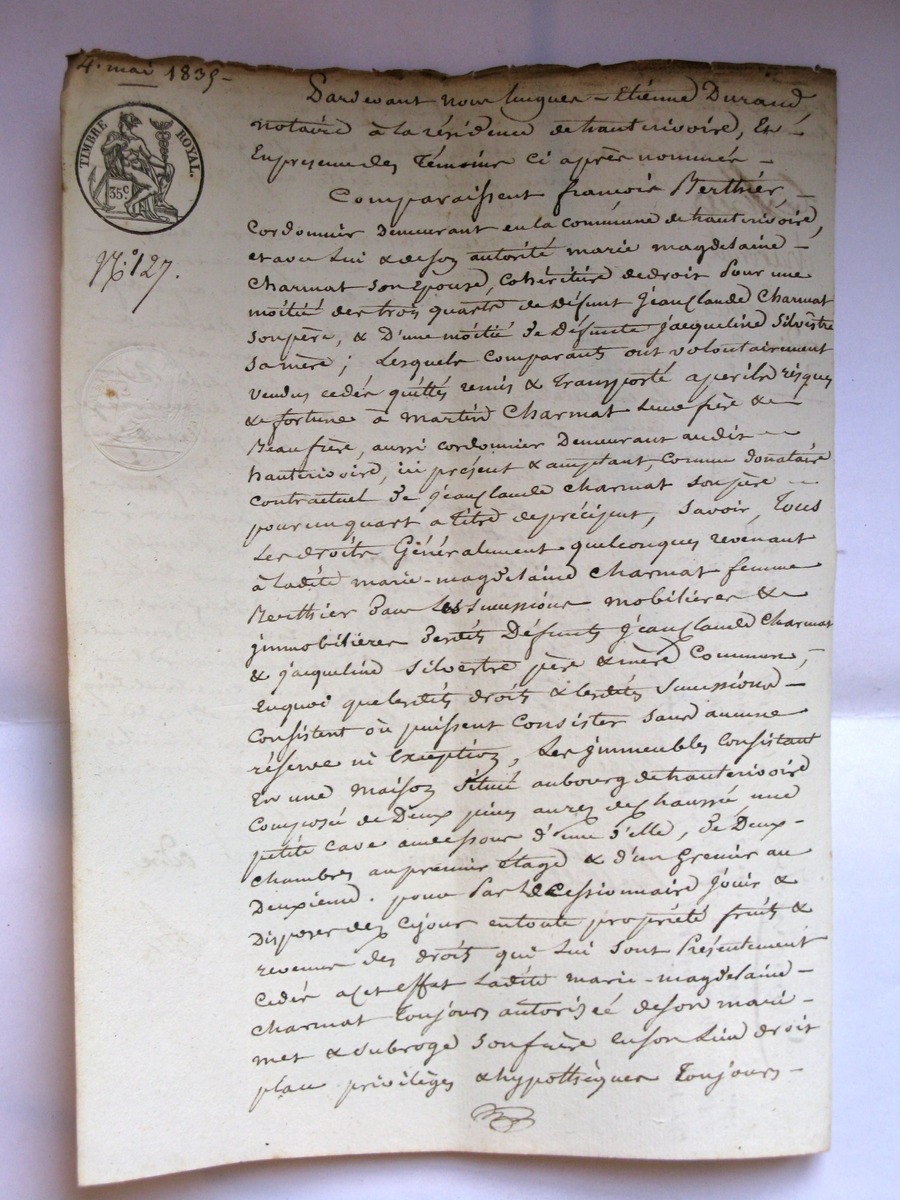 4. mai 1835 -
TIMBRE ROYAL.
35c
N.° 127.
Pardevant nous hugues - Etienne Durand
notaire à la résidence de hauterivoire, Et -
En présence des Témoins ci après nommés -
Comparaissent françois Berthier,
Cordonnier Demeurant en la commune de hauterivoire,
et avec lui & de son autorité marie magdelaine -
Charmat son Epouse, Cohéritière de droit pour une
moitié des trois quarts de Défunt Jean Claude Charmat
son père, & D'une moitié de Défunte jacqueline Silvestre
sa mère ; Lesquels Comparants ont volontairement
vendus cédés quittés remis & Transporté a perils risques
& fortune à martin Charmat Leur frère &
Beaufrère, aussi cordonnier Demeurant audit -
hauterivoire, ici présent & acceptant, comme Donataire
contractuel de jean Claude Charmat son père -
pour un quart à Titre de préciput, Savoir, Tous
Les droits Généralement quelconques revenant
à ladite marie-magdelaine Charmat femme
Berthier dans Les Successions mobilières &
jmmobilières desdits Défunts Jean Claude Charmat
& jacqueline Silvestre père & mère Communs, -
En quoi que lesdits droits & lesdites Successions -
Consistent ou puissent Consister sans aucune
réserve ni Exception, Les jmmeubles Consistant
En une maison Située au bourg de hauterivoire
Composée de Deux pièces au rez de chaussé, une
petite cave au dessous d'une d'elle, de Deux -
chambres au premier étage & d'un Grenier au
Deuxième. pour Par Le Cessionnaire Jouir &
Disposer dez Cejour en toute propriété fruits &
revenus des droits qui Lui Sont Présentement
Cédés a cet effet Ladite marie-magdelaine -
Charmat Toujours autorisée de son mari -
met & subroge Son frère en son Lieu droit
place privilèges & hypothèques Toujours -